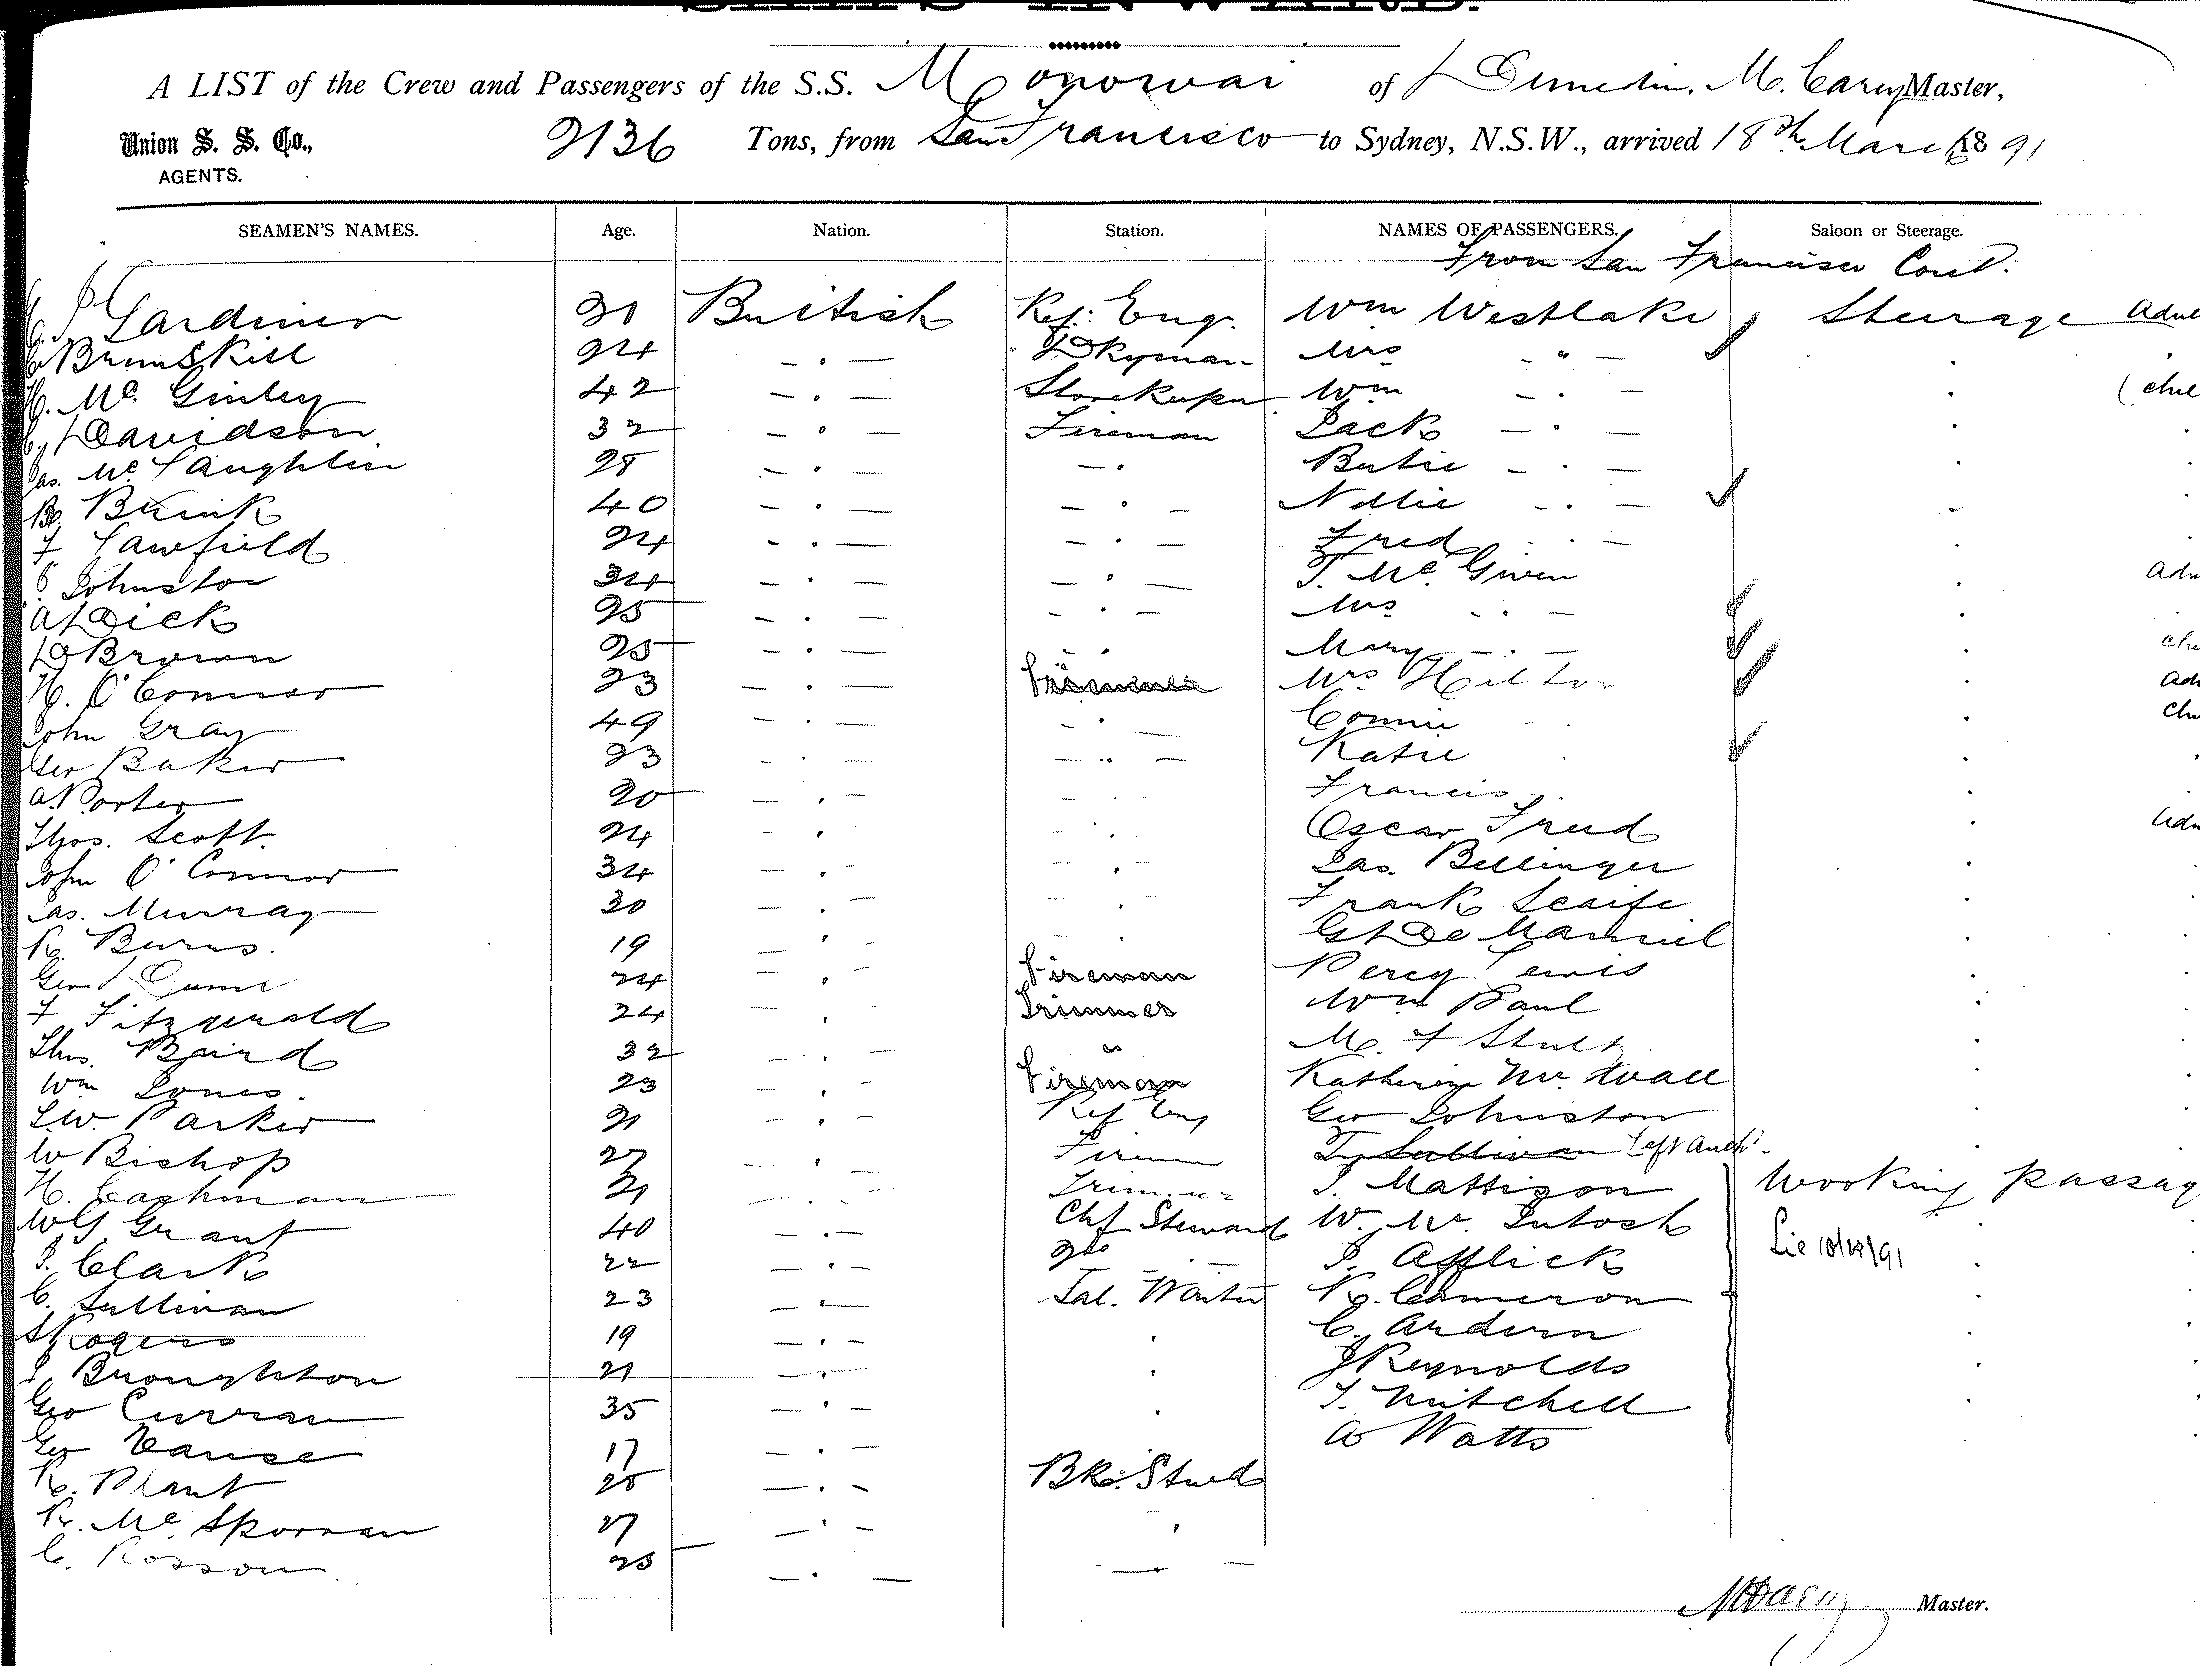 SHIPS INWARD.
A LIST of the Crew and Passengers of the S.S. Monowai of Dunedin, M. Carey Master,
Union S. S. Co., AGENTS. 2136 Tons, from San Francisco to Sydney, N.S.W., arrived 18th March 1891
SEAMEN'S NAMES. Age. Nation. Station. NAMES OF PASSENGERS. Saloon or Steerage.
From San Francisco Cont.
Gardiner 30 British Ref. Eng. Wm Westlake Steerage
Brunskill 24 - . - Mrs - " -
H. Mc Ginley 42 - . - Storekeeper Wm - . -
Davidson 32 - . - Fireman Jack - . -
Jas. Mc Laughlin 28 - . - - . Bertie - . -
Brink 40 - . - - . - Nellie - . -
F Cawfield 24 - . - - . - Fred . . -
Johnston 34 - . - - . - T. Mc Given
A Dick 25 - . - - . - Mrs - . -
D Brown 25 - . - - . Mary - . -
H. O'Connor 23 - . - Mrs Hilton
John Gray 49 - . - - . - Connie
Geo Baker 23 - . - - .. - Katie
A. Porter 20 - . - Francis
Thos. Scott. 24 - . - Oscar Freud
John O'Connor 34 - . - Jas. Bellinger
Jas. Murray 30 - . - Frank Scaife
R. Burns. 19 - . -
Geo Dunn 24 - . - Fireman Percy Lewis
F Fitzgerald 24 - . - Trimmer Wm Paul
Thos. Baird 32 - . - "
Wm Jones. 23 - . - Fireman
L.W. Parker 21 - . - Ref Eng Geo Johnston
W Bishop 27 - . - Firem T. Sullivan Left Auckd.
H. Cashman 21 - . - Trimmer J. Mattison Working passag
W G Grant 40 - . - Chf Steward W. Mc Intosh
J. Clark 22 - . - 2nd - J. Afflick
C. Sullivan 23 - . - Sal. Waiter R. Cameron
Rogers 19 - . - . C. Ardern
Broughton 21 - . - . J Reynolds
Geo Curran 35 - . - . T. Mitchell
Geo Vause 17 - . - A Watts
R. Plant 25 - . - Bk. Stwd
R. Mc Skorran 27 - . -
C. Rosson 25 - . - -
M Carey Master.